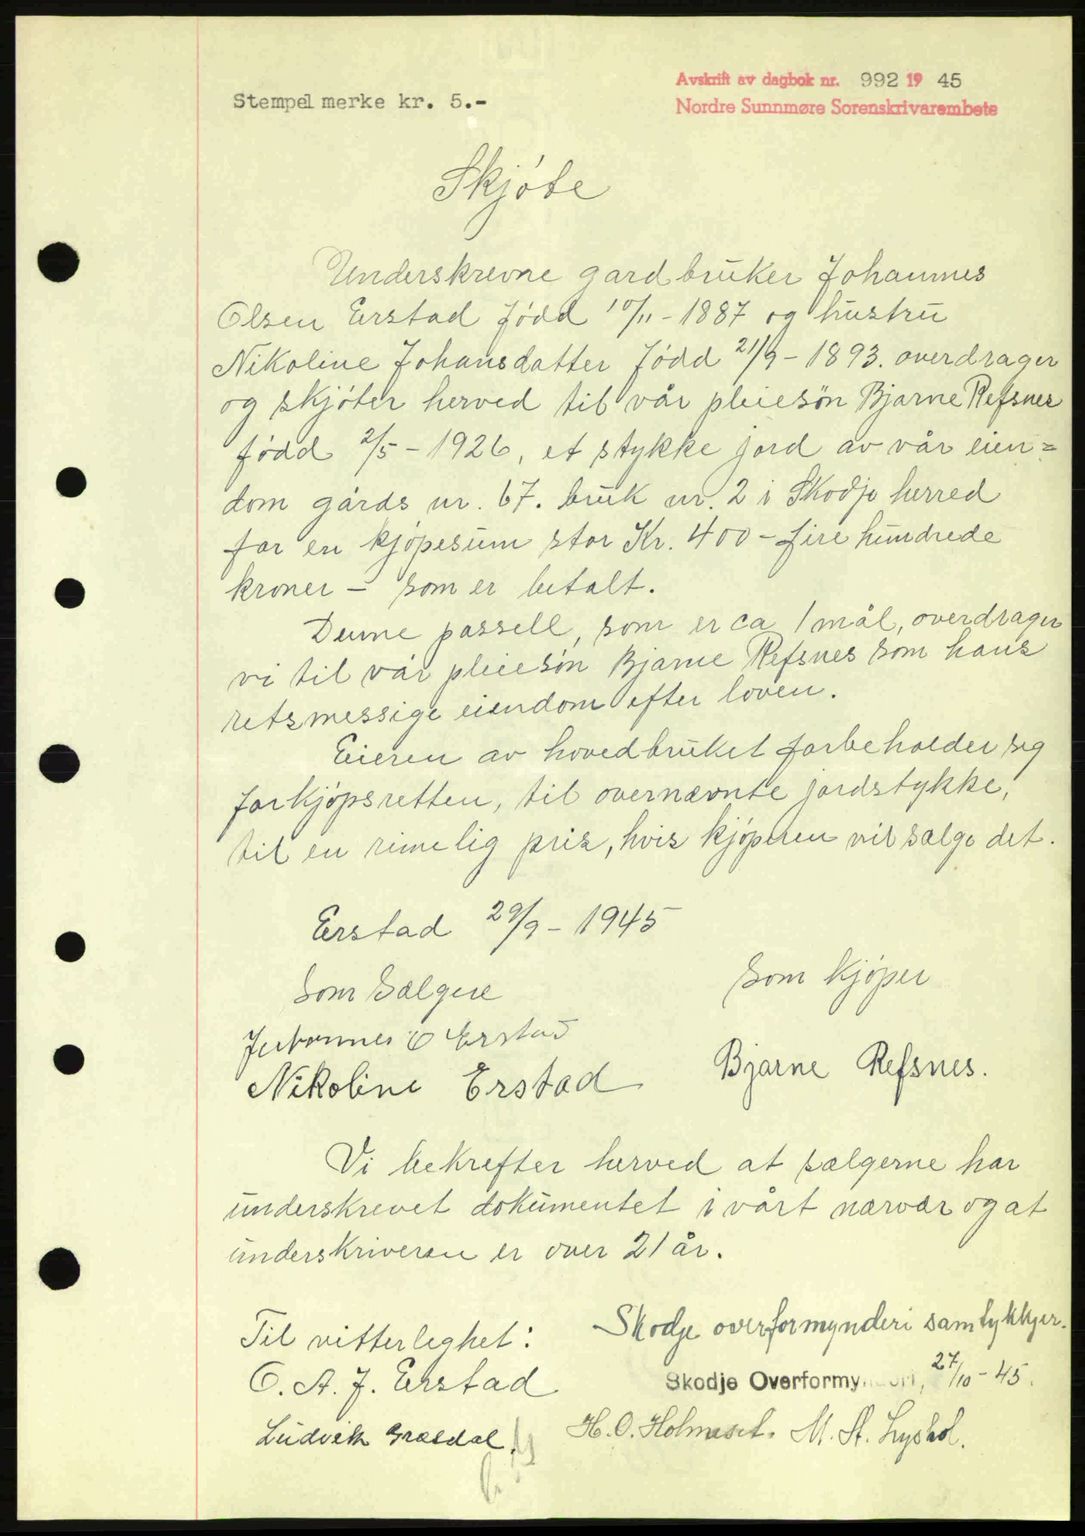 Stempelmerke kr. 5.-
Avskrift av dagbok nr. 992 19 45
Nordre Sunnmøre Sorenskrivarembete
Skjóte
Underskrevne gardbruker Johannes
Olsen Erstad fødd 10/11 - 1887 og hustru
Nikoline Johansdatter fødd 21/9 - 1893. overdrager
og skjóter herved til vår pleiesøn Bjarne Refsnes
fødd 2/5 - 1926, et stykke jord av vår eien=
dom gårds nr. 67. bruk nr. 2 i Skodje herred
for en kjøpesum stor Kr. 400 - fire hundrede
kroner - som er betalt.
Denne passell, som er ca 1 mål, overdrager
vi til vår pleiesøn Bjarne Refsnes som hans
retsmessige eiendom efter loven.
Eieren av hovedbruket forbeholder seg
forkjøpsretten, til overnævnte jordstykke,
til en rimelig pris, hvis kjøperen vil sælge det.
Erstad 29/9 - 1945
Som Sælgere
Som kjøper
Johannes O Erstad
Nikoline Erstad
Bjarne Refsnes.
Vi bekrefter herved at sælgerne har
underskrevet dokumentet i vårt nærvær og at
underskriveren er over 21 år.
Til vitterleghet:
O. A. J. Erstad
Ludvik Græsdal.
Skodje overformynderi samtykkjer.
Skodje Overformynderi, 27/10 - 45.
H. O. Holmeset. M. A. Lyshol.